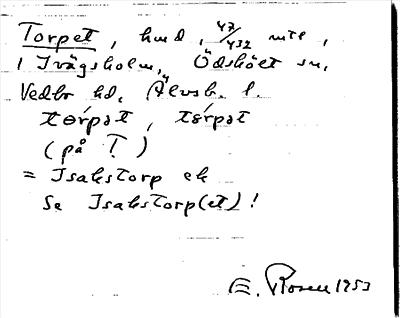 Torpet, hmd, 47/432 mtl,
i Ivägsholm, Ödskölt sn,
Vedbo hd, Älvsb. l.
tɵ́rpət, tɵ́rpət
(på T.)
= Isakstorp ek
Se Isakstorp(et)!
E. Rosell 1953